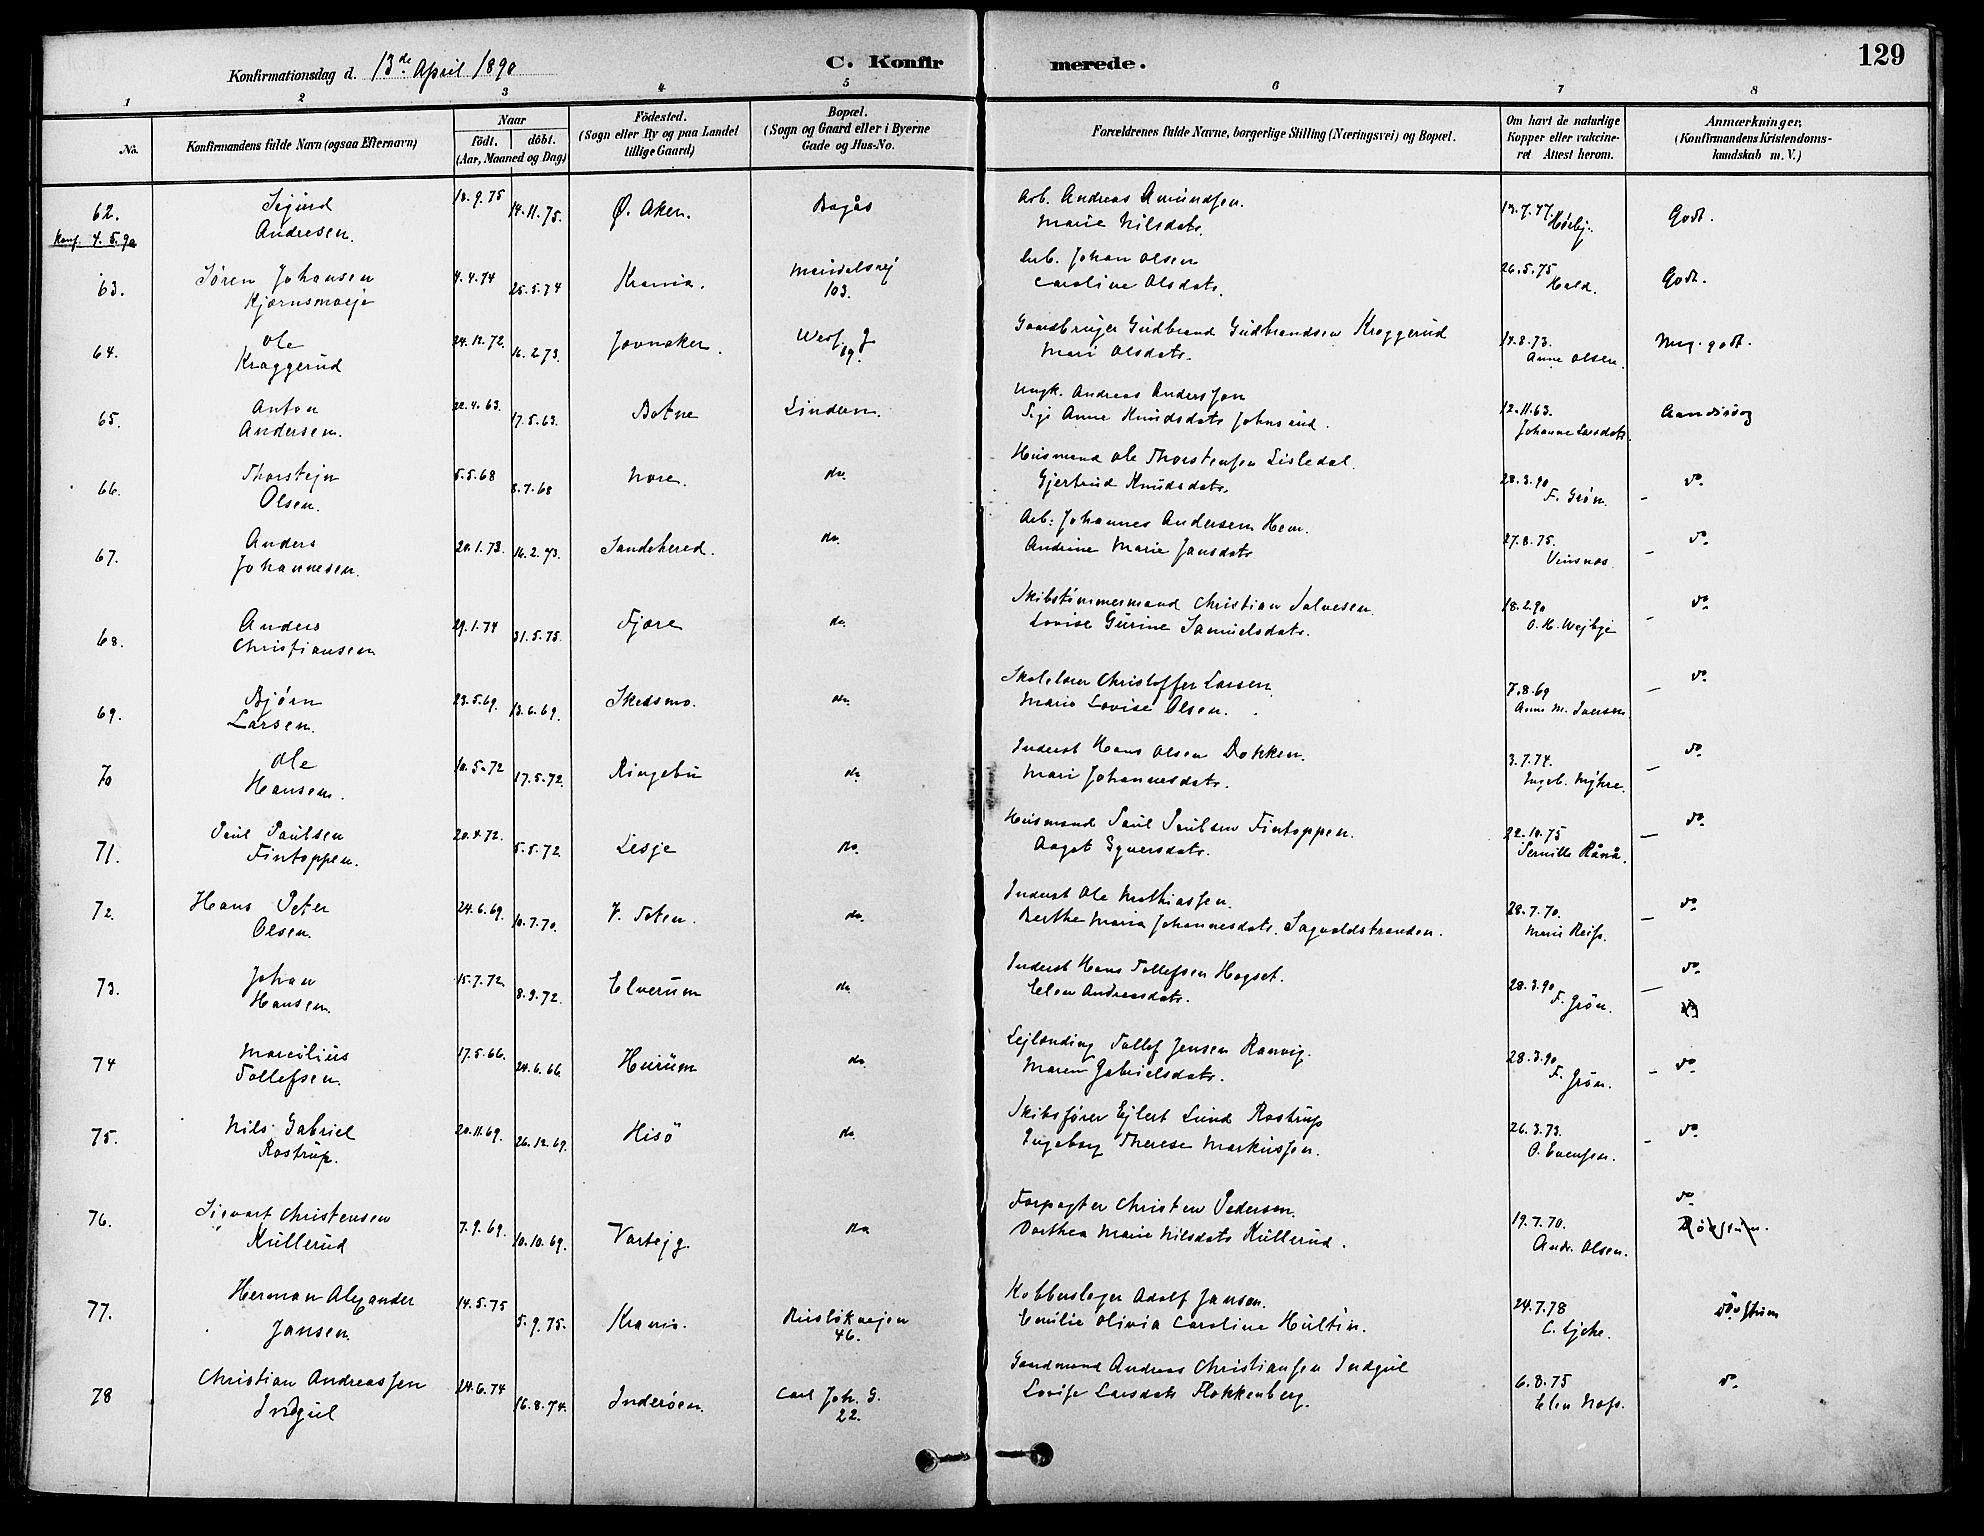 129
Konfirmationsdag d. 13de April 1890
C. Konfirmerede.
1 2 3 4 5 6 7 8
No.
Konfirmandens fulde Navn (ogsaa Efternavn)
Naar
födt. döbt.
(Aar, Maaned og Dag)
Födested.
(Sogn eller By og paa Landet
tillige Gaard)
Bopæl.
(Sogn og Gaard eller i Byerne
Gade og Hus-No.
Forældrenes fulde Navne, borgerlige Stilling (Næringsvei) og Bopæl.
Om havt de naturlige
Kopper eller vakcine-
ret Attest herom.
Anmærkninger,
(Konfirmandens Kristendoms-
kundskab m. V.)
62. Sigurd 14.11.75. Ø. Aker. Bogås Arb. Andreas Amundsen. Godt.
Konf. 4.5.90 Andresen. Marie Nilsdatr.
63. Søren Johansen 4.4.74 25.5.74 Krania. 103. Arb. Johan Olsen 26.5.75 Hald. Godt.
Caroline Olsdatr.
64. Ole 16.2.73. Jevnaker. Gaardbruger Gudbrand Gudbrandsen Kraggerud 14.8.73. Meg. godt.
Kraggerud Mari Olsdatr. Anne Olsen.
65. Anton 22.4.63. 17.5.63. Botne Lindern. Ungk. Andreas Anderssen 12.11.63.
Andersen. Anne Knudsdatr Johnsrud. Johanne Larsdatr.
66. Thorstejn 5.5.68 8.7.68 Nore. do. Husmand Ole Thorstensen Lisledal. 28.3.90 – do.
Olsen. Gjertrud Knudsdatr. F. Grøn.
67. Anders 20.1.73. 16.2.73. Sandehered. do. Arb. Johannes Andersen Hem. 27.8.75. – do.
Johannesen. Andrine Marie Jansdatr.
68. Anders 29.1.74 31.5.75. Fjære do. Skibstømmermand Christian Salvesen. 18.2.90 – do.
Christiansen Lovise Gurine Samuelsdatr.
69. Bjørn 23.5.69. 13.6.69. Skedsmo. do. Christoffer Larsen. 7.8.69 – do.
Larsen. Marie Lovise Olsen. Anne M. Iversen
70 Ole 10.5.72 17.5.72. Ringebu do. Inderst Hans Olsen Dokken. 3.7.74. – do.
Hansen. Mari Johannesdatr. Ingeb. Myhre.
71. Paul Paulsen 20.4.72. 5.5.72. Lesje do. Husmand Paul Paulsen Fintoppen. 22.10.75 – do.
Fintoppen.
72. Hans Peter 24.6.69. 10.7.70. V. Toten. do. Inderst Ole Mathiassen. 28.7.70. – do.
Olsen. Berthe Maria Johannesdatr. Sagvoldstranden.
73. Johan 15.7.72. 8.9.72. Elverum do. Inderst Hans Tollefsen Hagset. 28.3.90 – do.
Hansen. Elen Andreasdatr. F. Grøn.
74 Marcilius 17.5.66. 24.6.66. do. Lejlending Tollef Jensen Ranvig. 28.3.90 – do.
Tollefsen. Maren Gabrielsdatr. F. Grøn.
75. Nils Gabriel 20.11.69. 26.12.69. Hisö do. Skibsfører Ejlert Lund Rostrup 26.3.73. – do.
Rostrup. Ingeborg Therese Markussen. O. Evensen.
76. Sigvart Christensen 7.9.69. 10.10.69. Vartejg. do. Forpagter Christen Pedersen. 19.7.70. do.
Kullerud Dorthea Marie Nilsdatr Kullerud. Andr. Olsen.
77. Herman Alexander 14.5.75 5.9.75. Krania. 46. Kobberslager Adolf Jansen. 24.7.78
Jansen. Emilie Olivia Caroline Hultin.
78 Christian Andreassen 24.6.74 16.8.74. Inderøen. Carl Joh. G. Andreas Christiansen Indgul 6.8.75 do.
Indgul 22. Lovise Larsdatr Flokkenberg.